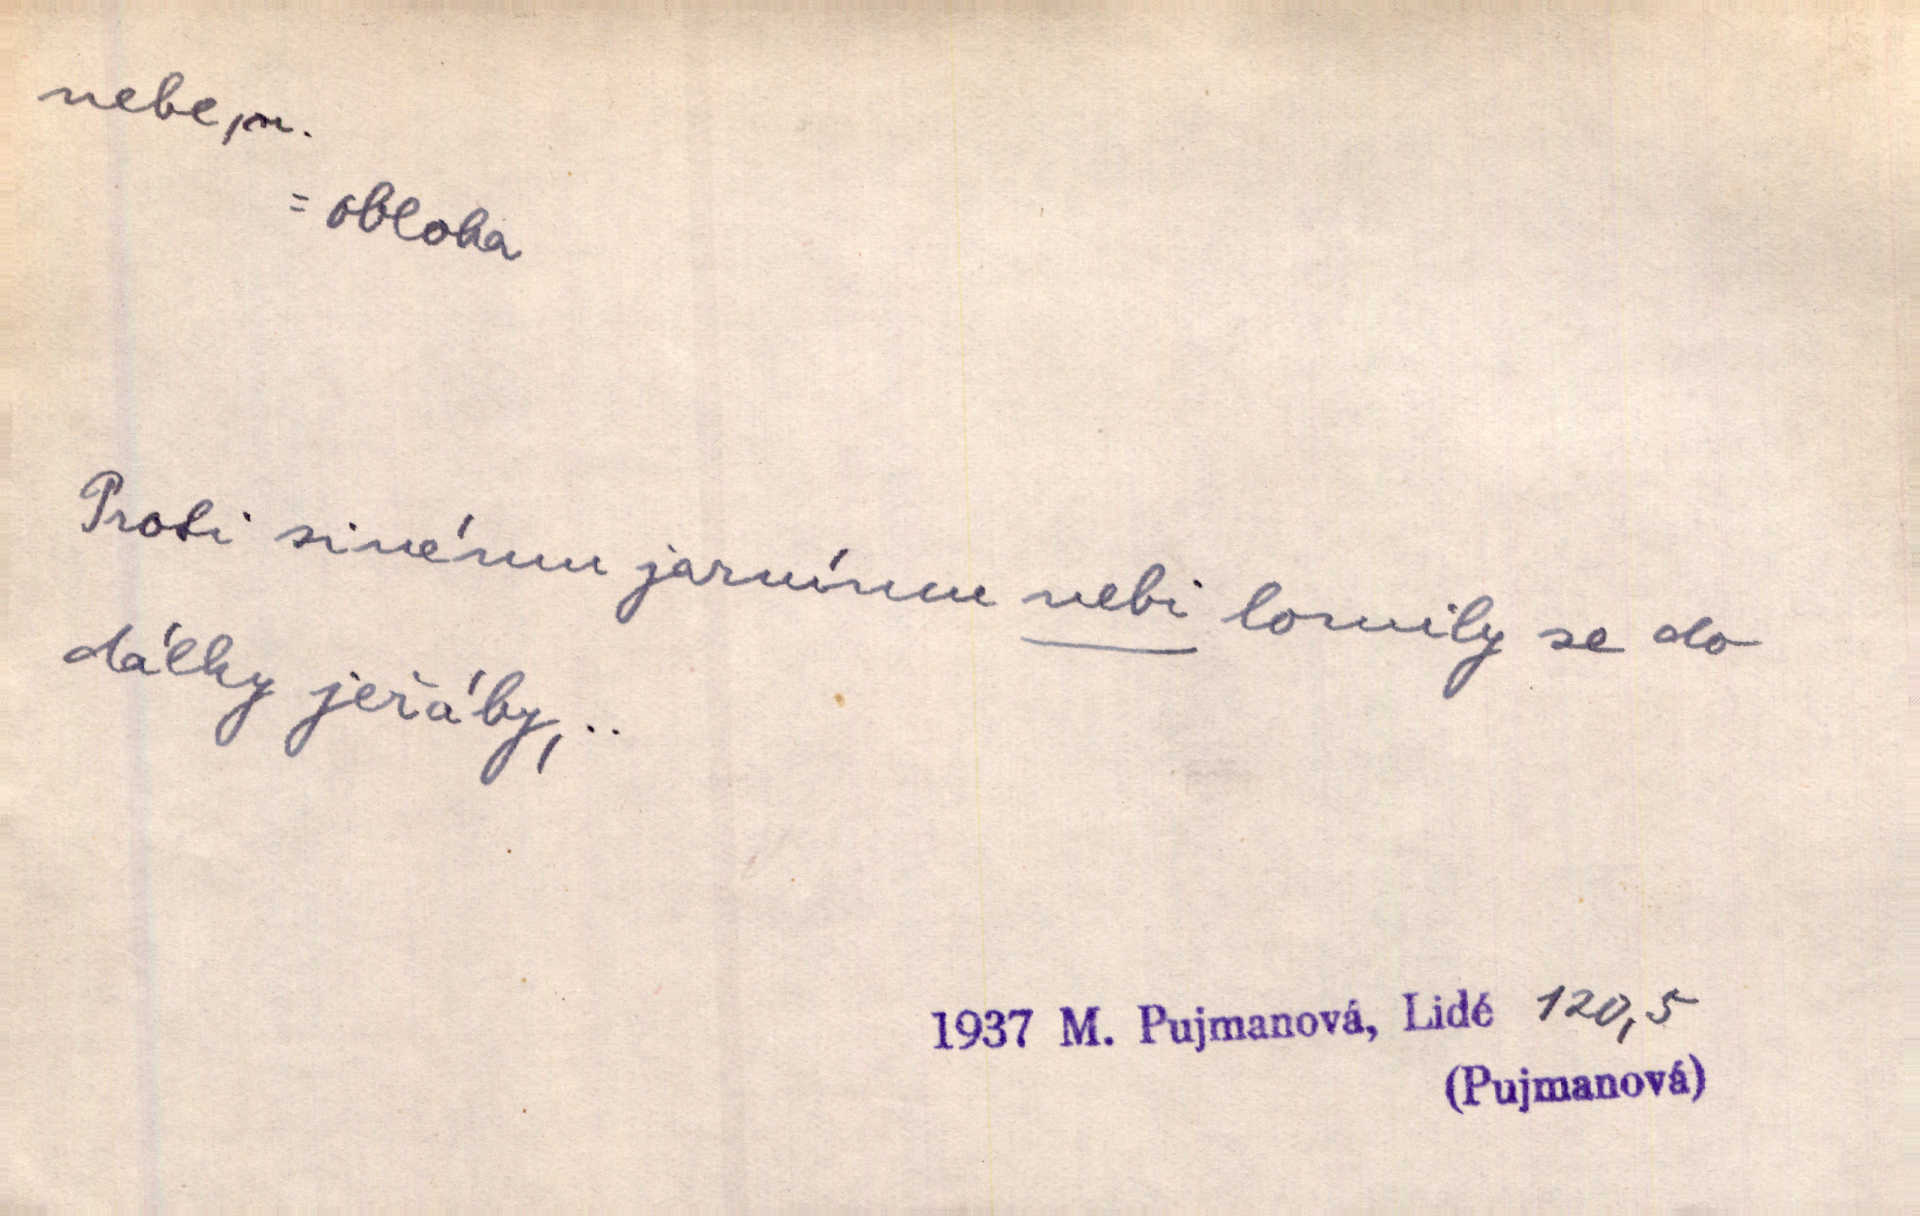 nebe, n.
= obloha
Proti sinému jarnímu nebi lomily se do
dálky jeřáby, ..
1937 M. Pujmanová, Lidé 120,5
(Pujmanová)